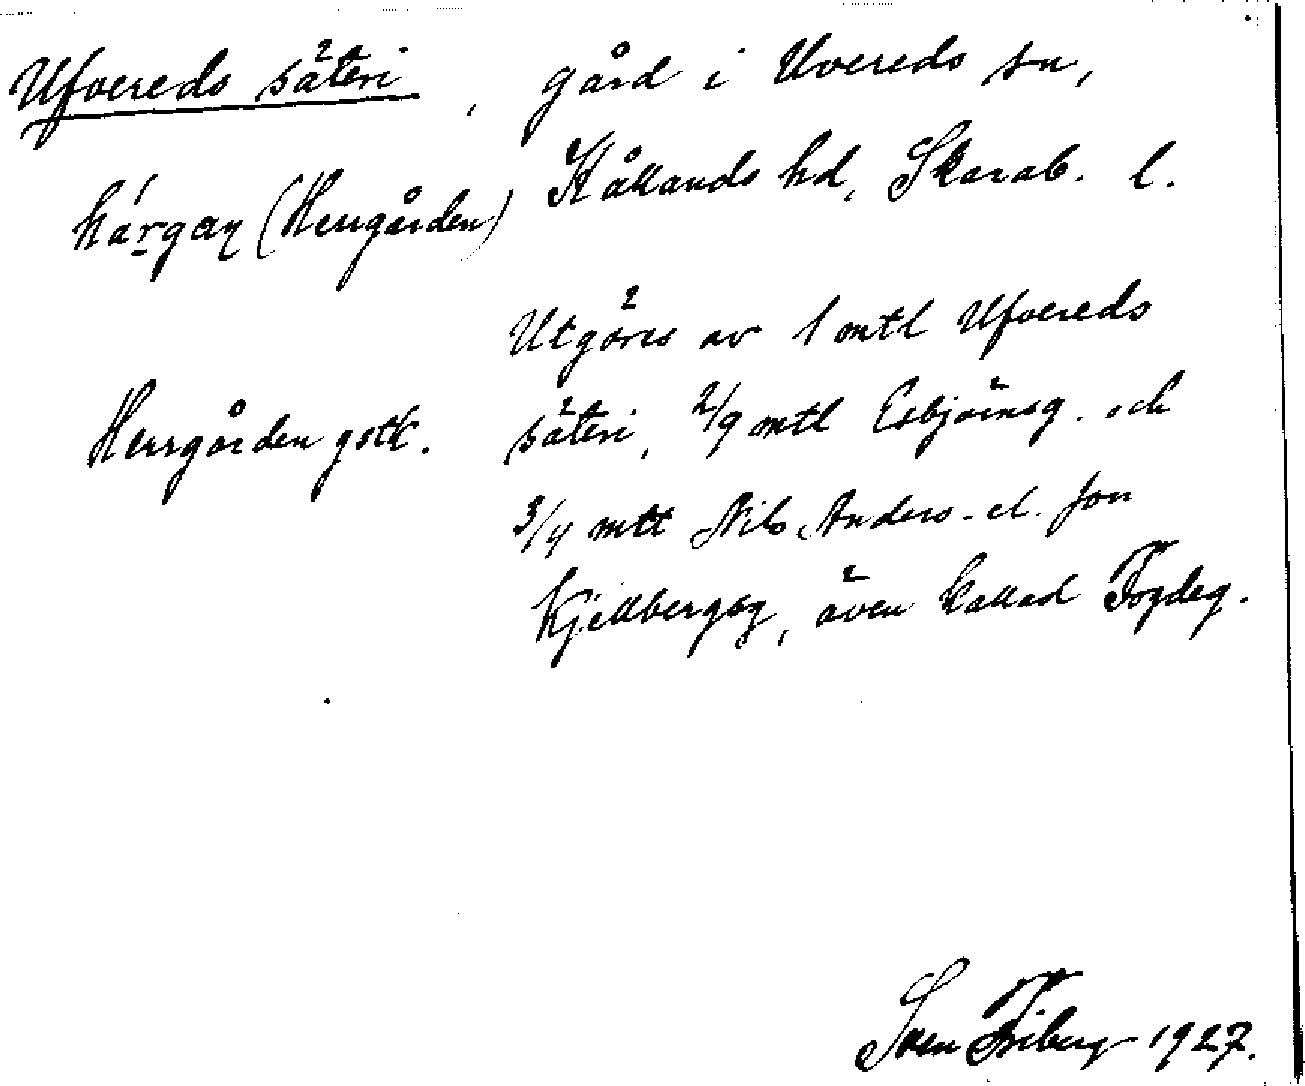 Ufvereds säteri, gård i Uvereds sn,
Kållands hd, Skarab. l.
hárgaɳ (Herrgården)
Utgöres av 1 mtl Ufvereds
säteri, 2/9 mtl Esbjörnsg. och
Herrgården gstk.
3/4 mtl Nils Anders- el. Jon
Kjellbergsg, även kallad Fogdeg.
Sven Friberg 1927.